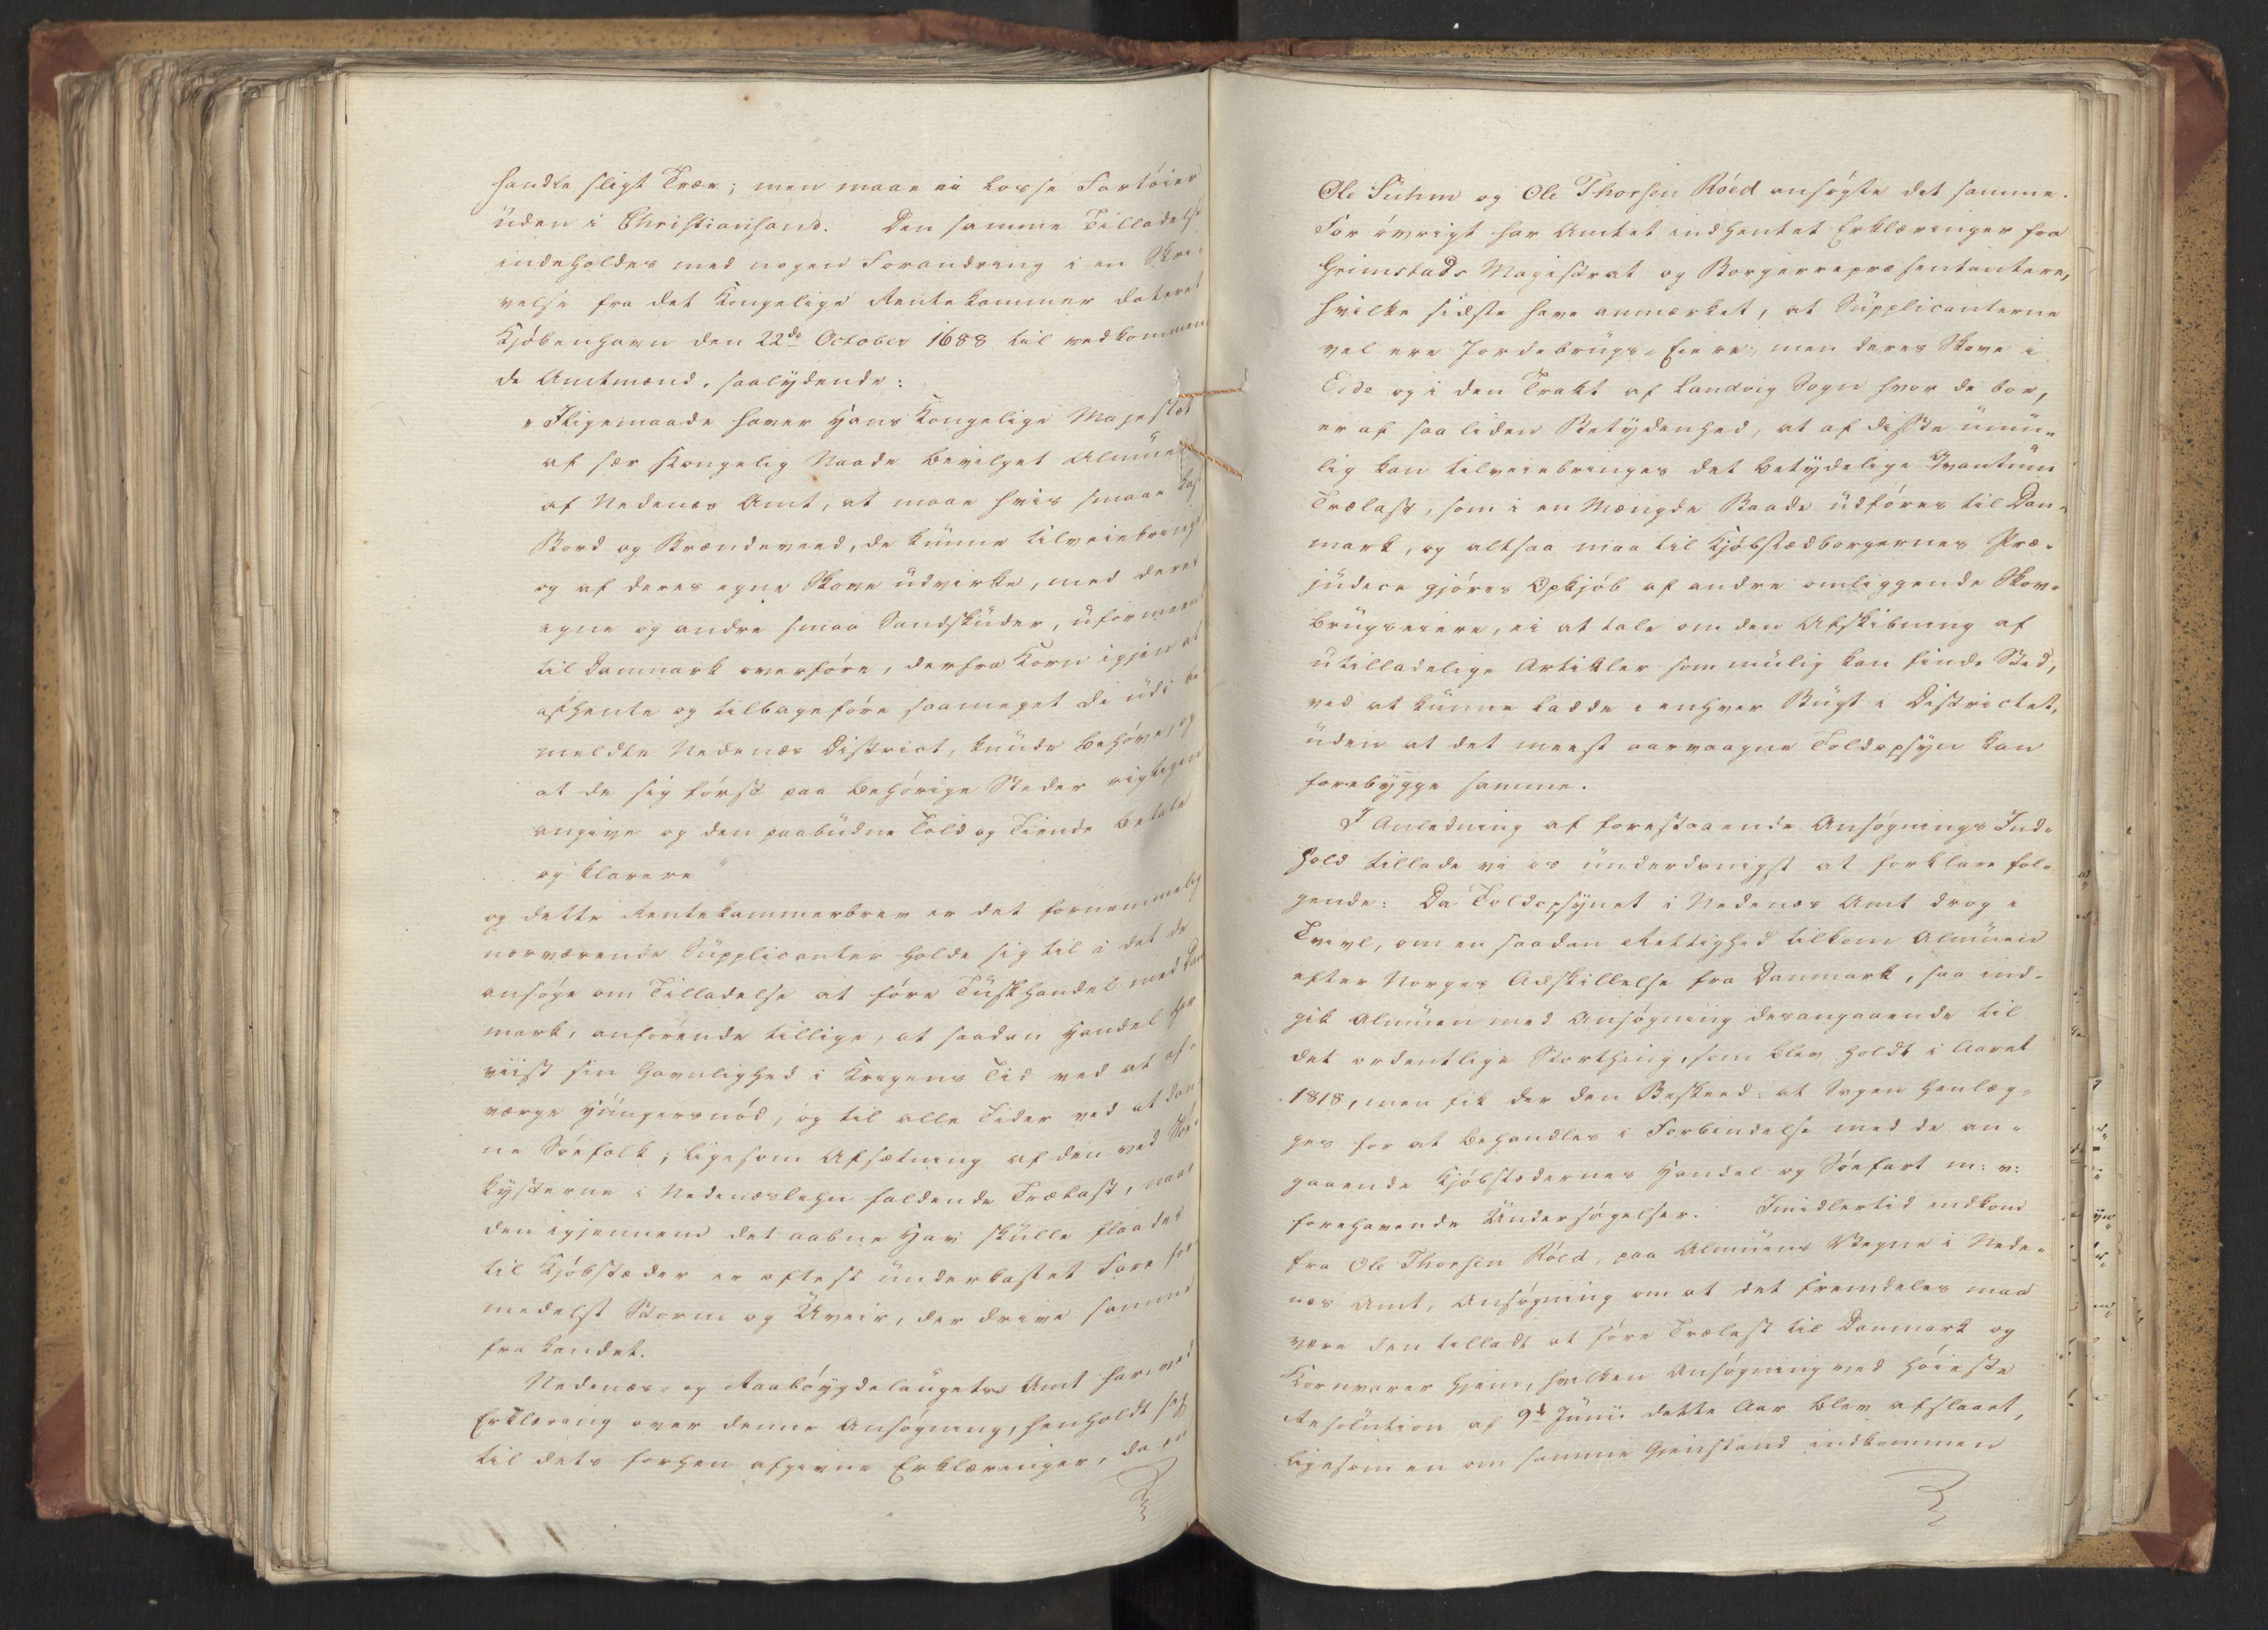 handle sligt Træe; men maae ei losse Fartøier
uden i Christiansand. Den samme Tilladelse
indeholdes med nogen Forandring i en Skri-
velse fra det Kongelige Rentekammer dateret
Kjøbenhavn den 22de October 1688 til vedkommen
de Amtmænd, saalydende:
"Iligemaade haver Hans Kongelige Majestæt
af sær Kongelig Naade bevilget Almuen
af Nedenæs Amt, at maae hvis smaae Last
Bord og Brændeveed, de kunne tilveiebringe
og af deres egne Skove udvirke, med deres
egne og andre smaa Sandskuder, uformeent
til Danmark overføre, derfra Korn igjen at
afhente og tilbageføre saameget de udi be-
meldte Nedenæs District, kunde behøve, og
at de sig først paa behørige Steder rigtigen
angive og den paabudne Told og Tiende betale
og klarere"
og dette Rentekammerbrev er det fornemmelig
nærværende Supplicanter holde sig til i det de
ansøge om Tilladelse at føre Tuskhandel med Dan
mark, anførende tillige, at saadan Handel har
viist sin Gavnlighed i Krigens Tid ved at af-
værge Hungersnød, og til alle Tider ved at dan
ne Søefolk; ligesom Afsætning af den ved Søe-
kysterne i Nedenæslehn faldende Trælast, naar
den igjennem det aabne Hav skulle flaades
til Kjøbstæder er oftest underkastet Fare for-
medelst Storm og Uveir, der drive samme
fra Landet.
Nedenæs- og Raabøygdelaugets Amt har, ved
Erklæring over denne Ansøgning, henholdt sig
til dets forhen afgivne Erklæringer, da en
Ole Suhm og Ole Thorsen Röed ansøgte det samme.
For øvrigt har Amtet indhentet Erklæringer fra
Grimstads Magistrat og Borgerrepræsentantere,
hvilke sidste have anmærket, at Supplicanterne
vel ere Jordebrugs-Eiere, men deres Skove i
Eide og i den Trakt af Landvig Sogn hvor de boe,
er af saa liden Betydenhed, at af disse umu-
lig kan tilveiebringes det betydelige Qvantum
Trælast, som i en Mængde Baade udføres til Dan-
mark, og altsaa maa til Kjøbstædborgernes Præ-
judice gjøres Opkjøb af andre omliggende Skov-
brugseiere, ei at tale om den Afskibning af
utilladelige Artikler som mulig kan finde Sted,
ved at kunne ladde i enhver Bugt i Districtet,
uden at det meest aarvaagne Toldopsyn kan
forebygge samme.
I Anledning af forestaaende Ansøgnings Ind-
hold tillade vi os underdanigst at forklare føl-
gende: Da Toldopsynet i Nedenæs Amt drog i
Tvivl, om en saadan Rettighed tilkom Almuen
efter Norges Adskillelse fra Danmark, saa ind-
gik Almuen med Ansøgning desangaaende til
det ordentlige Storthing, som blev holdt i Aaret
1818, men fik der den Beskeed: at Sagen henlæg-
ges for at behandles i Forbindelse med de an-
gaaende Kjøbstædernes Handel og Søefart m: v:
forehavende Undersøgelser. Imidlertid indkom
fra Ole Thorsen Röed, paa Almuens Vegne i Nede-
næs Amt, Ansøgning om at det fremdeles maa
være den tilladt at føre Trælast til Danmark og
Kornvarer hjem, hvilken Ansøgning ved høieste
Resolution af 9d Junii dette Aar blev afslaaet,
ligesom en om samme Gjenstand indkommen